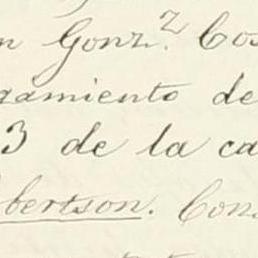 n Gonz.z Cos
gamiento de
3 de la ca
bertson. Con